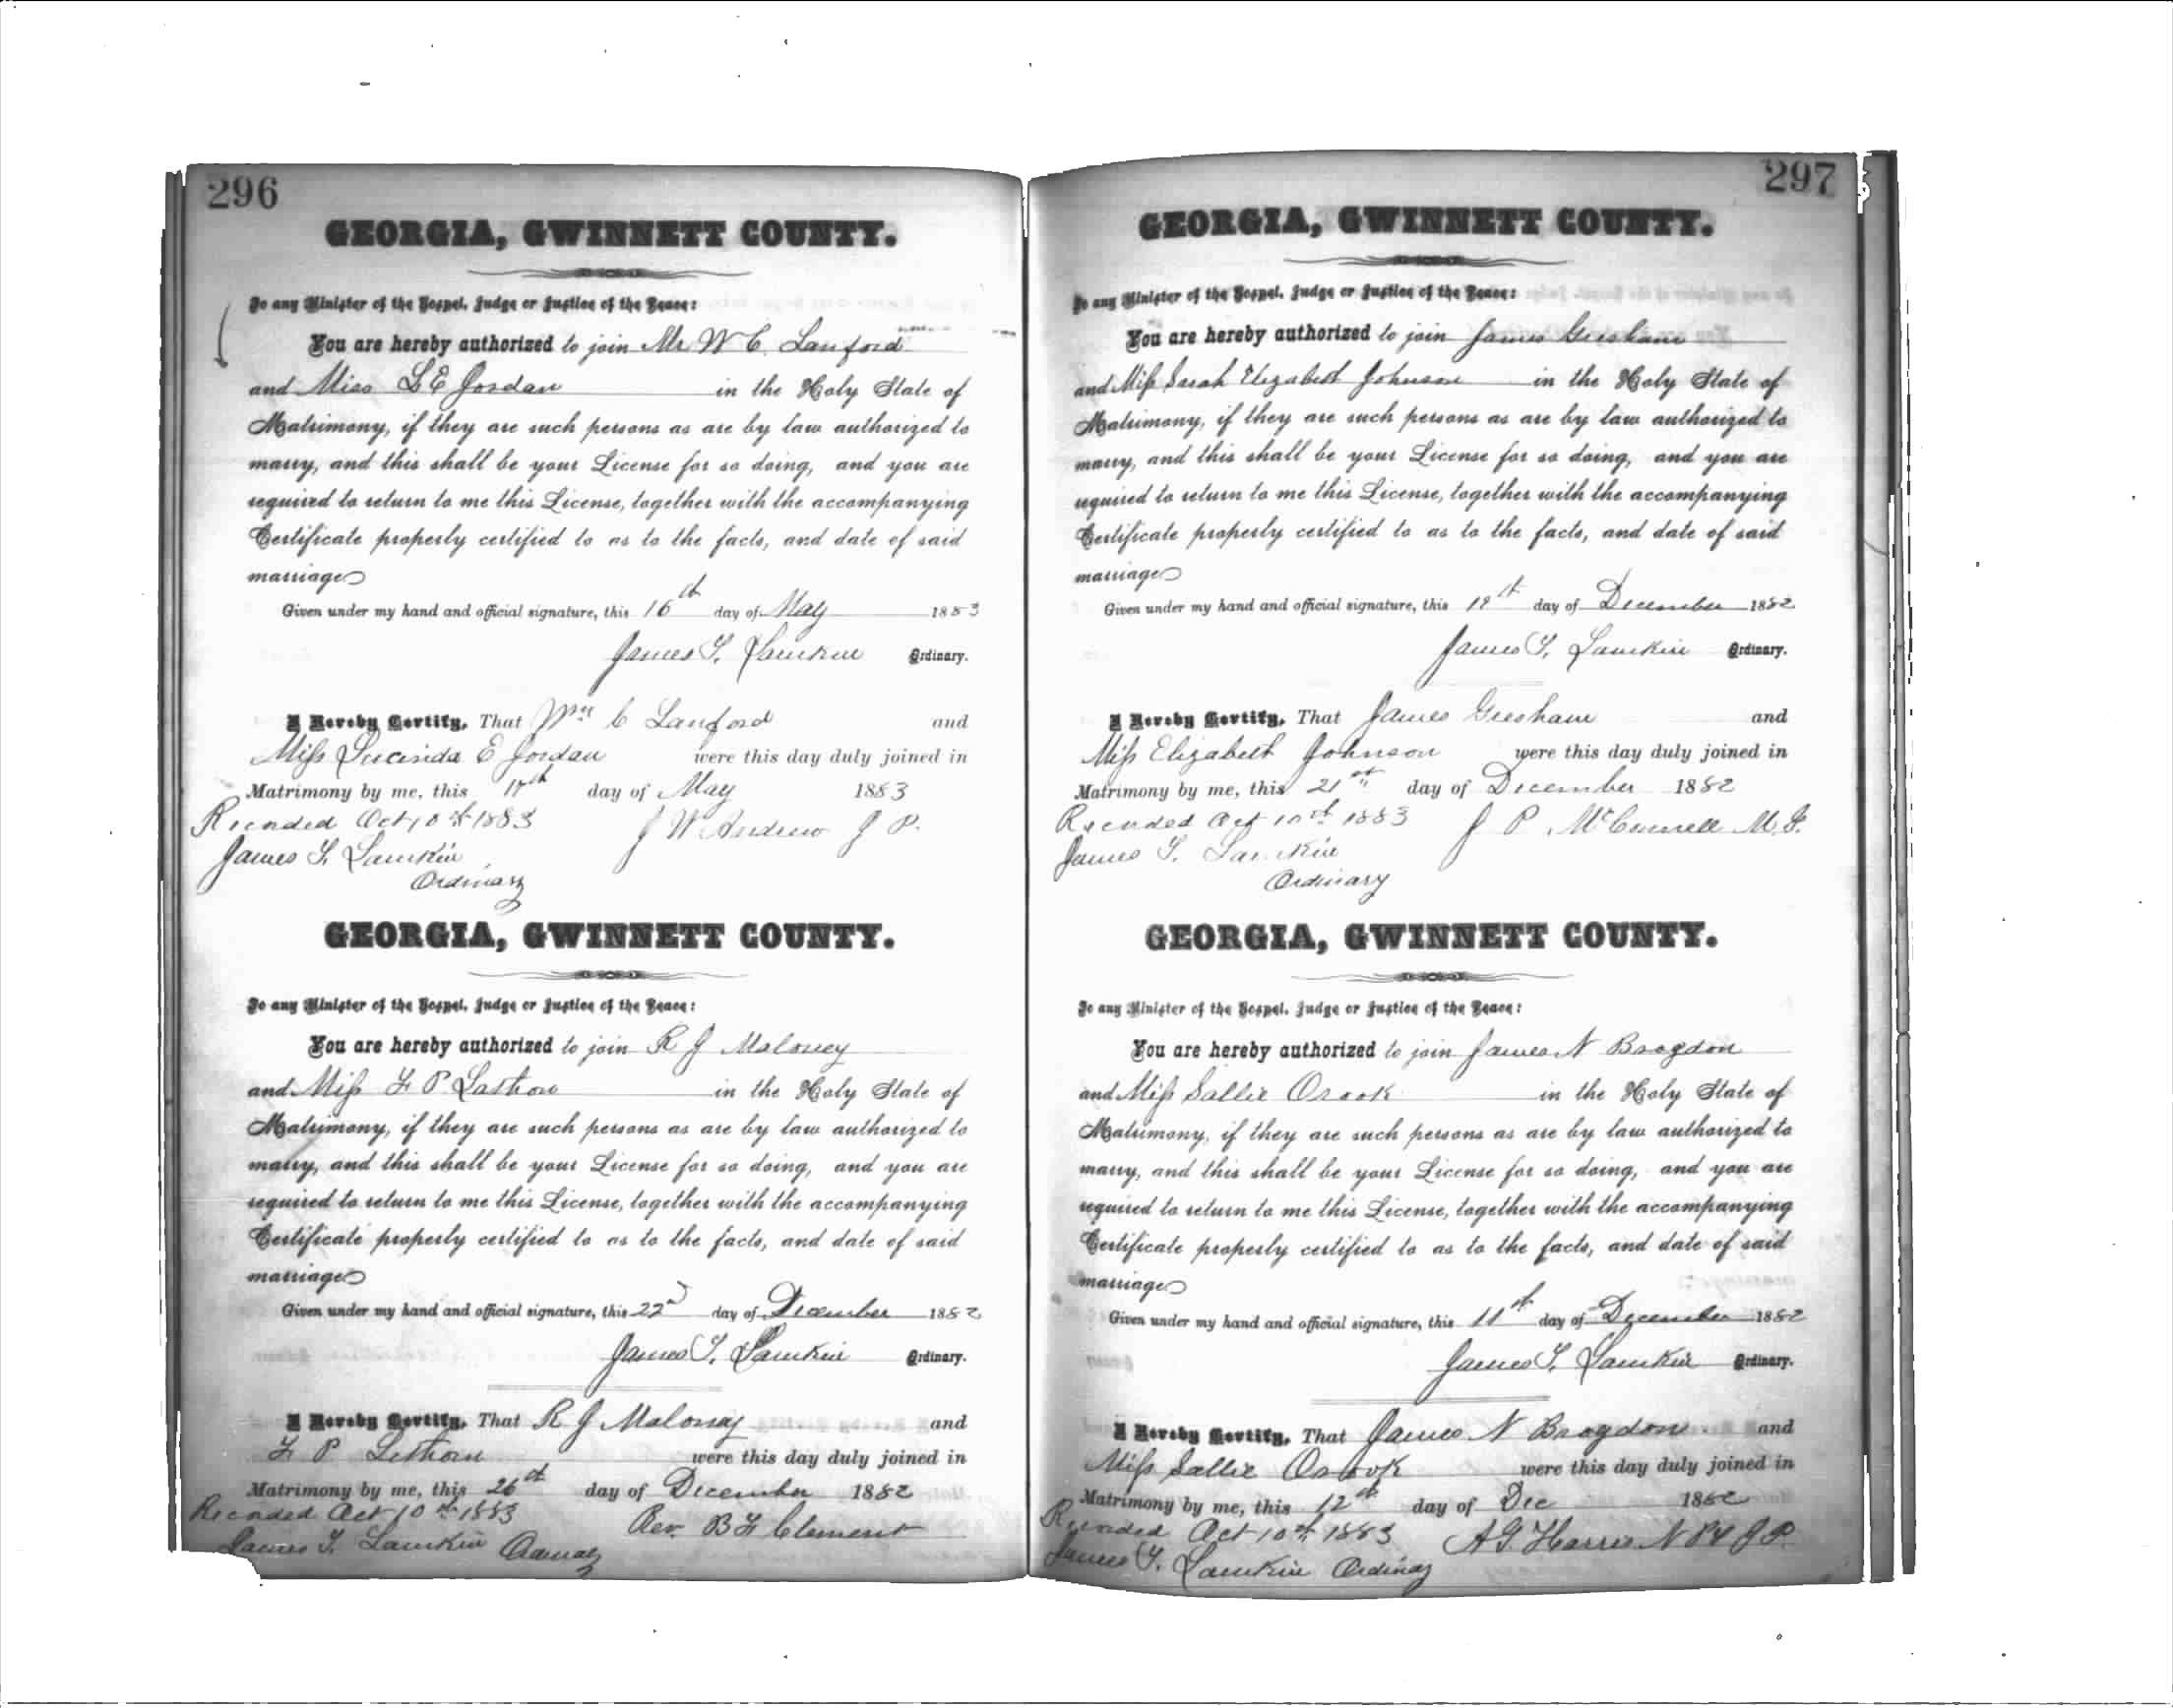 296
GEORGIA, GWINNETT COUNTY.
To any Minister of the Gospel, Judge or Justice of the Peace:
You are hereby authorized to join Mr W C. Lanford
and Miss L E Jordan in the Holy State of
Matrimony, if they are such persons as are by law authorized to
marry, and this shall be your License for so doing, and you are
required to return to me this License, together with the accompanying
Certificate properly certified to as to the facts, and date of said
marriage
Given under my hand and official signature, this 16th day of May 1883
James T. Lamkin Ordinary.
I Hereby Certify, That Wm C Lanford and
Miss Lucinda E Jordan were this day duly joined in
Matrimony by me, this 17th day of May 1883
Recorded Oct 10th 1883 J W Andrew J P.
James T. Lamkin
Ordinary
GEORGIA, GWINNETT COUNTY.
To any Minister of the Gospel, Judge or Justice of the Peace:
You are hereby authorized to join R J Maloney
and Miss F P. in the Holy State of
Matrimony, if they are such persons as are by law authorized to
marry, and this shall be your License for so doing, and you are
required to return to me this License, together with the accompanying
Certificate properly certified to as to the facts, and date of said
marriage
Given under my hand and official signature, this 22nd day of December 1882
James T. Lamkin Ordinary.
I Hereby Certify, That R J Maloney and
F P were this day duly joined in
Matrimony by me, this 26th day of December 1882
Recorded Oct 10th 1883 Rev. B F Clement
James T. Lamkin
297
GEORGIA, GWINNETT COUNTY.
To any Minister of the Gospel, Judge or Justice of the Peace:
You are hereby authorized to join James Gresham
and Miss Sarah Elizabeth Johnson in the Holy State of
Matrimony, if they are such persons as are by law authorized to
marry, and this shall be your License for so doing, and you are
required to return to me this License, together with the accompanying
Certificate properly certified to as to the facts, and date of said
marriage
Given under my hand and official signature, this 19th day of December 1882
James T. Lamkin Ordinary.
I Hereby Certify, That James Gresham and
Miss Elizabeth Johnson were this day duly joined in
Matrimony by me, this 21st day of December 1882
Recorded Oct 10th 1883 J P. McConnell M. G.
James T. Lamkin
Ordinary
GEORGIA, GWINNETT COUNTY.
To any Minister of the Gospel, Judge or Justice of the Peace:
You are hereby authorized to join James N Brogdon
and Miss Sallie in the Holy State of
Matrimony, if they are such persons as are by law authorized to
marry, and this shall be your License for so doing, and you are
required to return to me this License, together with the accompanying
Certificate properly certified to as to the facts, and date of said
marriage
Given under my hand and official signature, this 11th day of December 1882
James T. Lamkin Ordinary.
I Hereby Certify, That James N Brogdon and
Miss Sallie were this day duly joined in
Matrimony by me, this 12th day of Dec 1882
Recorded Oct 10th 1883 A G Harris N P & J P.
James T. Lamkin Ordinary